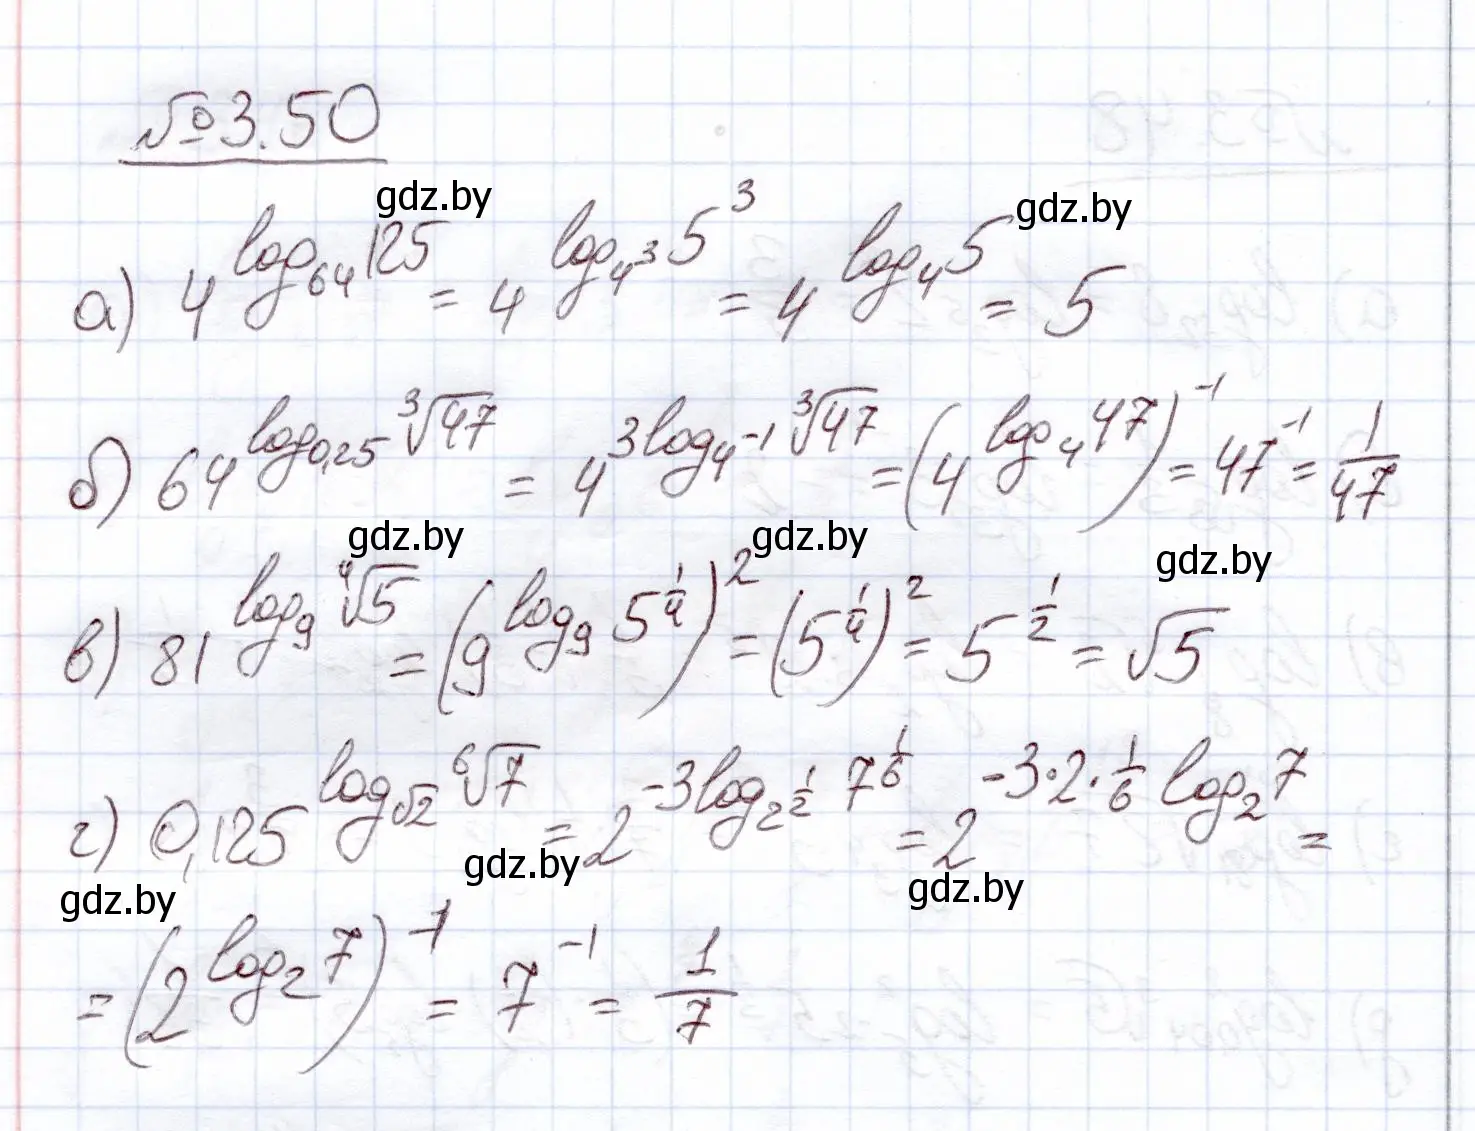 № 3.50
gdz.by gdz.by
а) 4^{log_{64} 125} = 4^{log_{4^3} 5^3} = 4^{log_4 5} = 5
б) 64^{log_{0,25} ∛47} = 4^{3 log_{4^{-1}} ∛47} = (4^{log_4 47})^{-1} = 47^{-1} = 1/47
gdz.by gdz.by gdz.by
в) 81^{log_9 ∜5} = (9^{log_9 5^{1/4}})^2 = (5^{1/4})^2 = 5^{1/2} = √5
г) 0,125^{log_{√2} ⁶√7} = 2^{-3 log_{2^{1/2}} 7^{1/6}} = 2^{-3·2·1/6 log_2 7} =
gdz.by gdz.by gdz.by
= (2^{log_2 7})^{-1} = 7^{-1} = 1/7